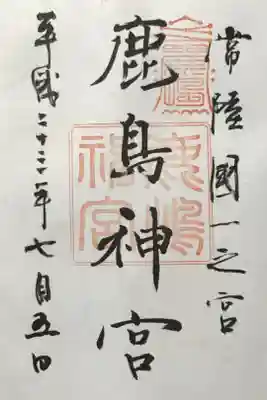 常陸國一之宮
鹿島神宮
鹿嶋
神宮
平成二十二年七月五日